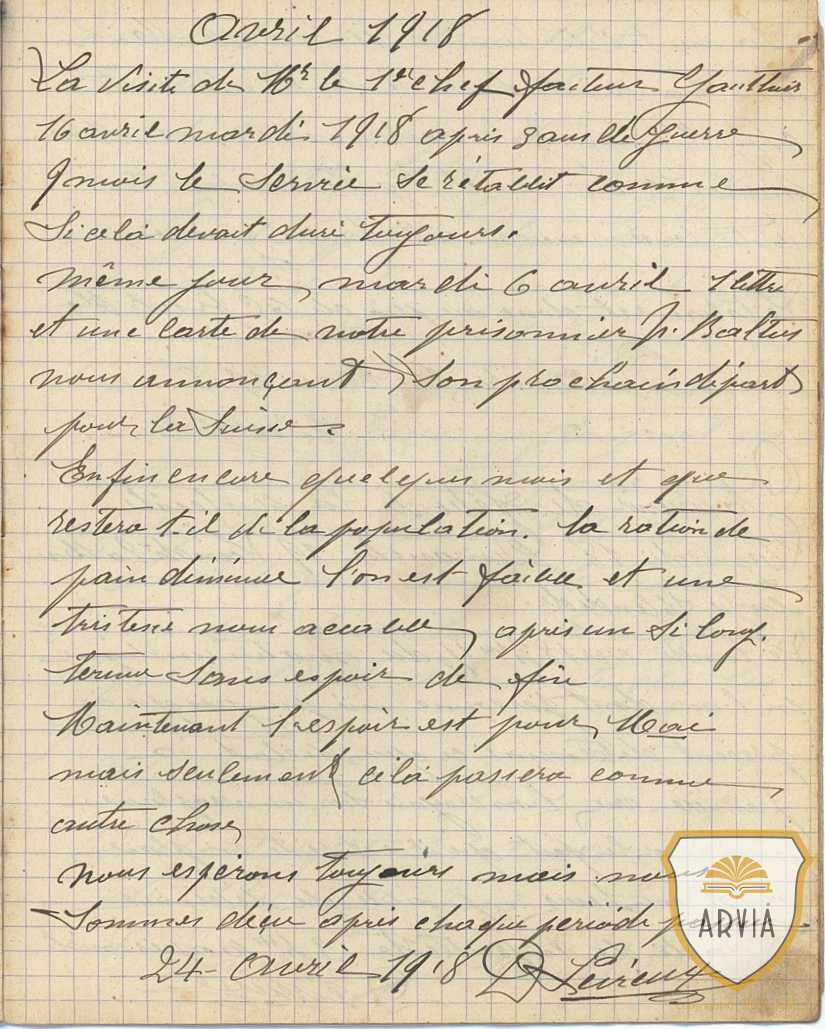 Avril 1918
La visite de Mr le 1er chef facteur Gauthier
16 avril mardi 1918 après 3 ans de guerre
9 mois le service se rétablit comme
si cela devait duré toujours.
même jour, mardi 6 avril 1 lettre
et une carte de notre prisonnier J. Baltus
nous annonçant son prochain départ
pour la Suisse.
Enfin encore quelques mois et que
restera t-il de la population. la ration de
pain diminue l'on est faible et une
tristesse nous accable, après un si long.
terme sans espoir de fin
Maintenant l'espoir est pour Mai
mais seulement cela passera comme
autre chose,
nous espérons toujours mais nous
sommes déçu après chaque période
24 - Avril 1918
ARVIA